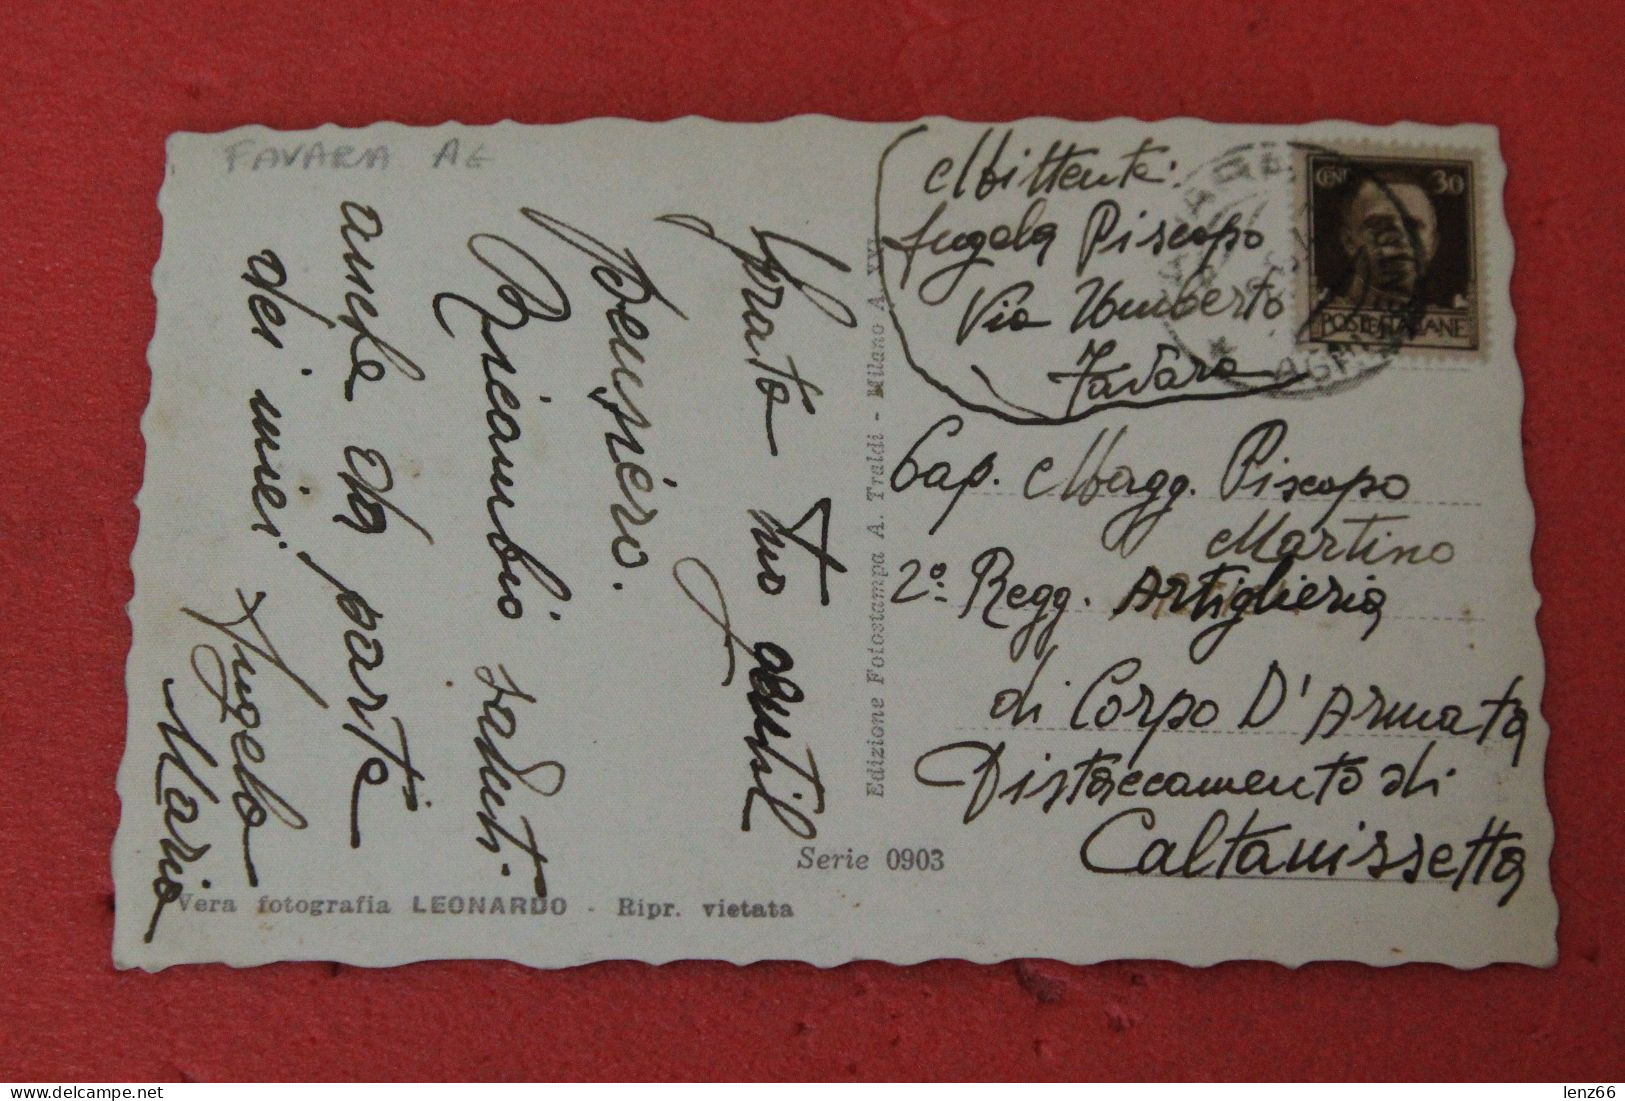 FAVARA AG
Grato tuo gentil
pensiero.
Ricambio saluti
anche da parte
dei miei.
Angelo
Mario
Edizione Fotostampa A. Traldi - Milano A. XXI
Serie 0903
Vera fotografia LEONARDO - Ripr. vietata
Mittente:
Angelo Piscopo
Via Umberto
Favara
CENT 30
POSTE ITALIANE
Cap. Magg. Piscopo
Martino
2º Regg. Artiglieria
di Corpo D'Armata
Distaccamento di
Caltanissetta
lenz66